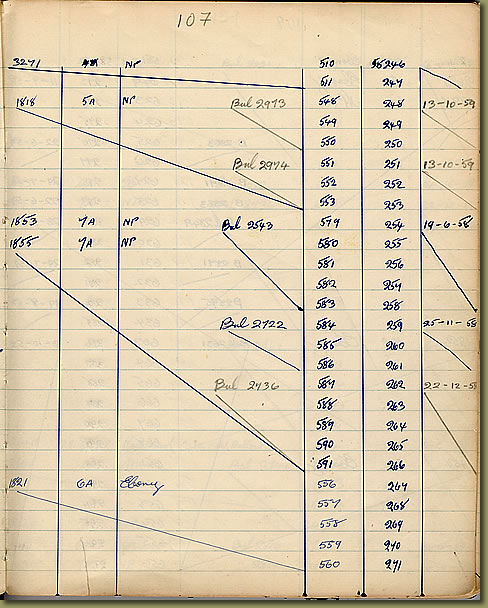 107
3271 NP 510 58246
511 247
1818 5A NP Bul 2973 548 248 13-10-59
549 249
550 250
Bul 2974 551 251 13-10-59
552 252
553 253
1853 7A NP Bul 2543 579 254 19-6-58
1855 7A NP 580 255
581 256
582 257
583 258
Bul 2722 584 259 25-11-58
585 260
586 261
Bul 2736 587 262 22-12-58
588 263
589 264
590 265
591 266
1821 6A Ebony 556 267
557 268
558 269
559 270
560 271